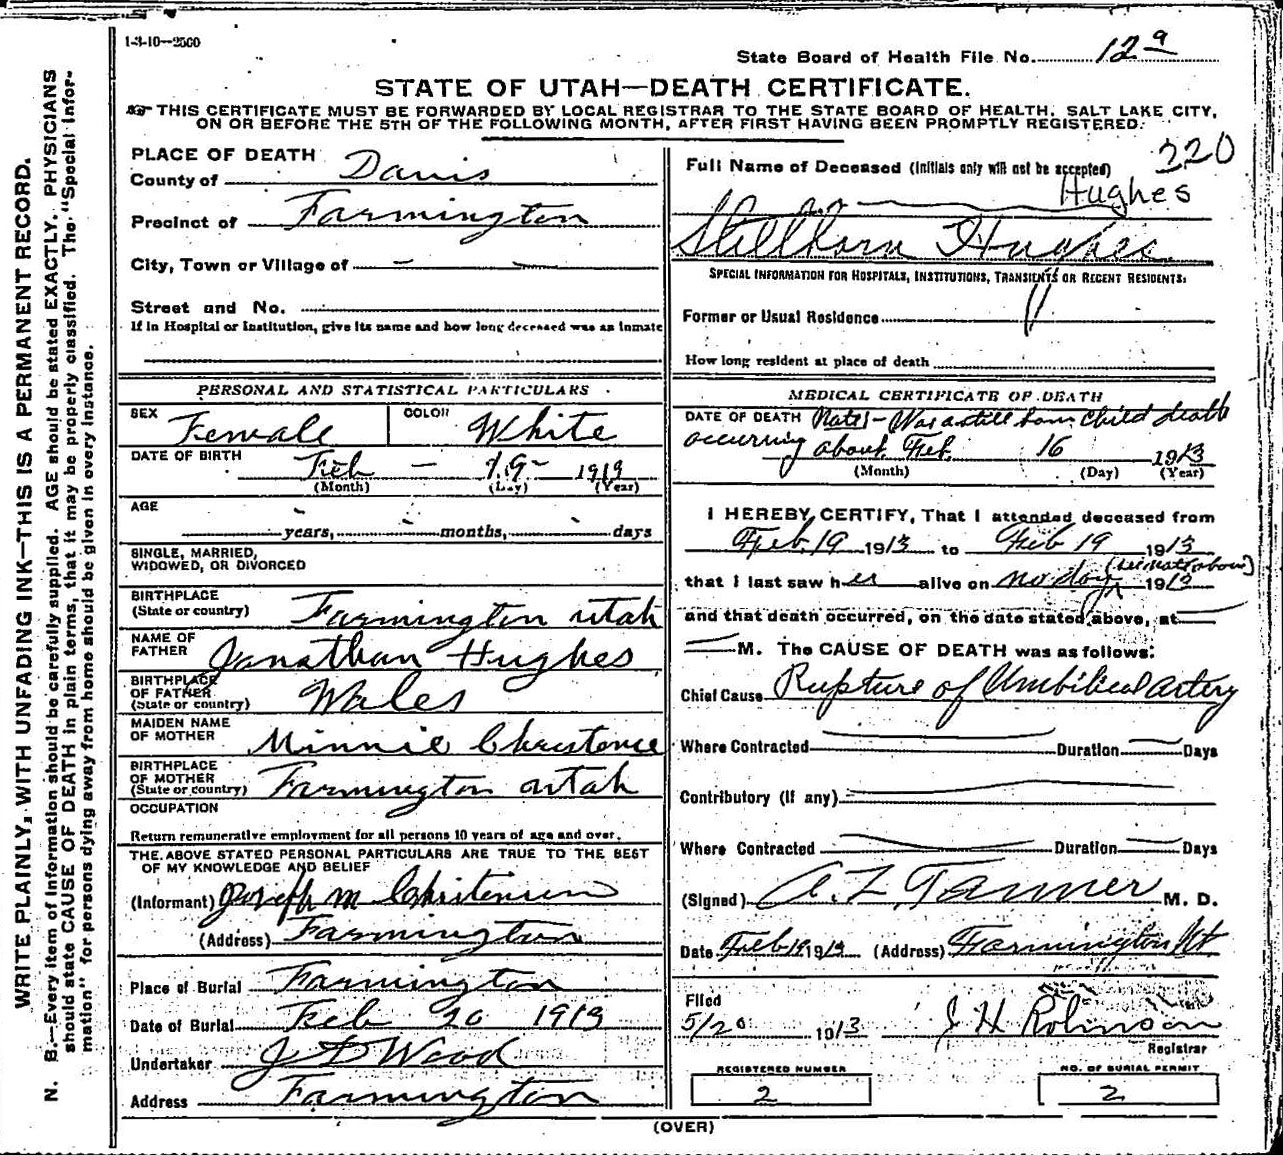 1-3-10—2500
State Board of Health File No. 12 a
STATE OF UTAH—DEATH CERTIFICATE.
THIS CERTIFICATE MUST BE FORWARDED BY LOCAL REGISTRAR TO THE STATE BOARD OF HEALTH, SALT LAKE CITY,
ON OR BEFORE THE 5TH OF THE FOLLOWING MONTH, AFTER FIRST HAVING BEEN PROMPTLY REGISTERED.
WRITE PLAINLY, WITH UNFADING INK—THIS IS A PERMANENT RECORD.
N. B.—Every item of information should be carefully supplied. AGE should be stated EXACTLY. PHYSICIANS
should state CAUSE OF DEATH in plain terms, that it may be properly classified. The "Special Infor-
mation" for persons dying away from home should be given in every instance.
PLACE OF DEATH
County of Davis
Precinct of Farmington
City, Town or Village of — —
Street and No.
If in Hospital or Institution, give its name and how long deceased was as inmate
PERSONAL AND STATISTICAL PARTICULARS
SEX Female COLOR White
DATE OF BIRTH Feb — 19 — 1913
(Month) (Day) (Year)
AGE
years, months, days
SINGLE, MARRIED,
WIDOWED, OR DIVORCED
BIRTHPLACE
(State or country) Farmington Utah
NAME OF
FATHER Jonathan Hughes
BIRTHPLACE
OF FATHER
(State or country) Wales
MAIDEN NAME
OF MOTHER Minnie
BIRTHPLACE
OF MOTHER
(State or country) Farmington Utah
OCCUPATION
Return remunerative employment for all persons 10 years of age and over.
THE ABOVE STATED PERSONAL PARTICULARS ARE TRUE TO THE BEST
OF MY KNOWLEDGE AND BELIEF
(Informant) Joseph M Christensen
(Address) Farmington
Place of Burial Farmington
Date of Burial Feb 20 1913
Undertaker J D Wood
Address Farmington
220
Full Name of Deceased (Initials only will not be accepted)
Hughes
Stillborn Hughes
SPECIAL INFORMATION FOR HOSPITALS, INSTITUTIONS, TRANSIENTS OR RECENT RESIDENTS:
Former or Usual Residence
How long resident at place of death
MEDICAL CERTIFICATE OF DEATH
DATE OF DEATH Note - Was a still born child death
occurring about Feb. 16 1913
(Month) (Day) (Year)
I HEREBY CERTIFY, That I attended deceased from
Feb. 19 1913 to Feb 19 1913
that I last saw her alive on no day (see note above) 1913
and that death occurred, on the date stated above, at —
— M. The CAUSE OF DEATH was as follows:
Chief Cause Rupture of Umbilical Artery
Where Contracted Duration Days
Contributory (if any)
Where Contracted Duration Days
(Signed) A Z Tanner M. D.
Date Feb 19 1913 (Address) Farmington Ut.
Filed
5/20 1913 J H Robinson
Registrar
REGISTERED NUMBER
2
NO. OF BURIAL PERMIT
2
(OVER)